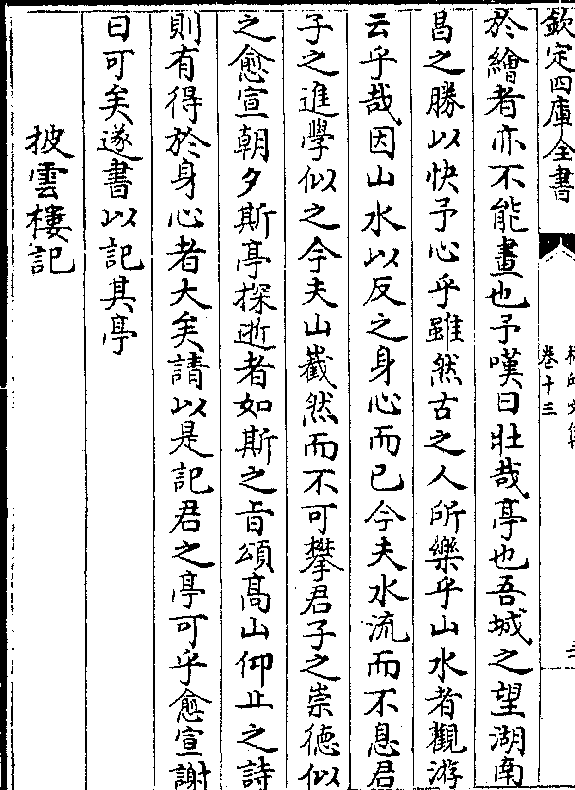 欽定四庫全書
卷十三
於繪者亦不能畫也予嘆曰壯哉亭也吾城之望湖南
昌之勝以快予心乎雖然古之人所樂乎山水者觀游
云乎哉因山水以反之身心而已今夫水流而不息君
子之進學似之今夫山巀然而不可攀君子之崇德似
之愈宣朝夕斯亭探逝者如斯之旨頌高山仰止之詩
則有得於身心者大矣請以是記君之亭可乎愈宣謝
曰可矣遂書以記其亭
披雲樓記